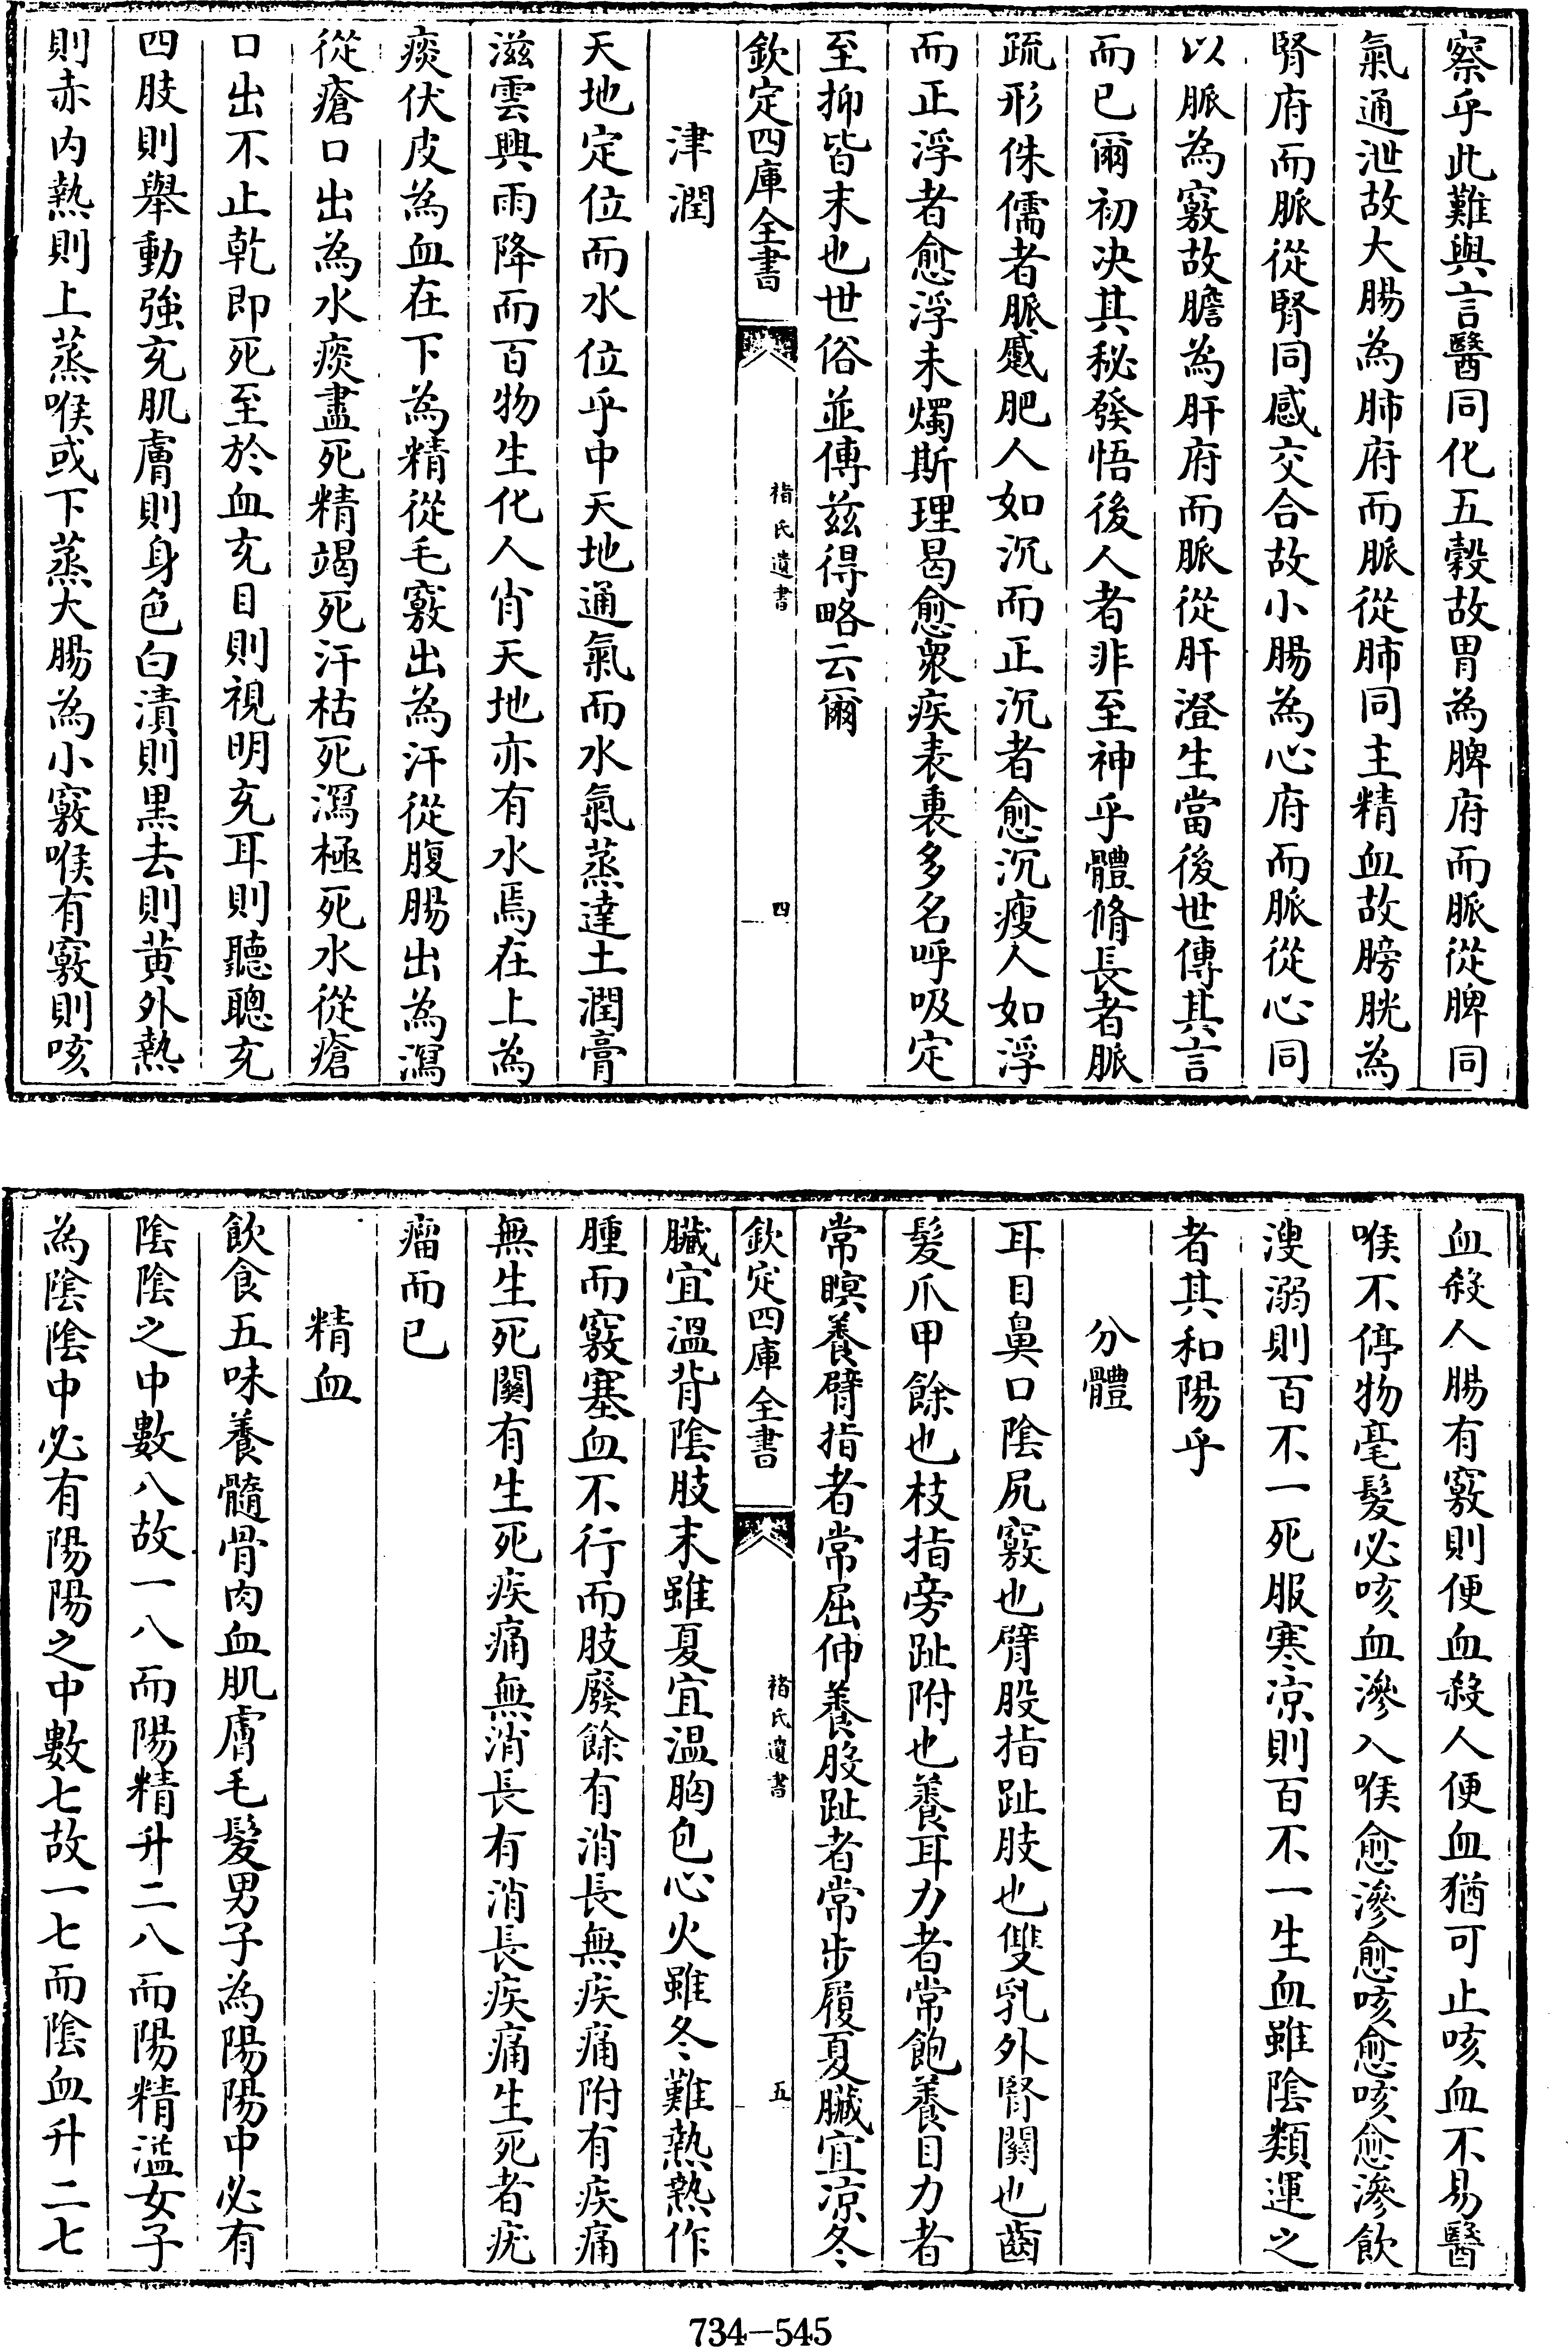 察乎此難與言醫同化五穀故胃為脾府而脈從脾同
氣通泄故大腸為肺府而脈從肺同主精血故膀胱為
腎府而脈從腎同感交合故小腸為心府而脈從心同
以脈為竅故膽為肝府而脈從肝澄生當後世傳其言
而已爾初决其秘發悟後人者非至神乎體脩長者脈
疏形侏儒者脈蹙肥人如沉而正沉者愈沉瘦人如浮
而正浮者愈浮未燭斯理曷愈衆疾表裏多名呼吸定
至抑皆末也世俗並傳茲得略云爾
欽定四庫全書
禇氏遺書
四
津潤
天地定位而水位乎中天地通氣而水氣蒸達土潤膏
滋雲興雨降而百物生化人肖天地亦有水焉在上為
痰伏皮為血在下為精從毛竅出為汗從腹腸出為瀉
從瘡口出為水痰盡死精竭死汗枯死瀉極死水從瘡
口出不止乾即死至於血充目則視明充耳則聽聰充
四肢則舉動強充肌膚則身色白漬則黒去則黄外熱
則赤内熱則上蒸喉或下蒸大腸為小竅喉有竅則咳
血殺人腸有竅則便血殺人便血猶可止咳血不易醫
喉不停物毫髮必咳血滲入喉愈滲愈咳愈咳愈滲飲
溲溺則百不一死服寒凉則百不一生血雖陰類運之
者其和陽乎
分體
耳目鼻口陰尻竅也臂股指趾肢也雙乳外腎關也齒
髮爪甲餘也枝指旁趾附也養耳力者常飽養目力者
常瞑養臂指者常屈伸養股趾者常步履夏臟宜凉冬
欽定四庫全書
禇氏遺書
五
臟宜溫背陰肢末雖夏宜溫胸包心火雖冬難熱熱作
腫而竅塞血不行而肢廢餘有消長無疾痛附有疾痛
無生死關有生死疾痛無消長有消長疾痛生死者疣
瘤而已
精血
飲食五味養髓骨肉血肌膚毛髮男子為陽陽中必有
陰陰之中數八故一八而陽精升二八而陽精溢女子
為陰陰中必有陽陽之中數七故一七而陰血升二七
734-545